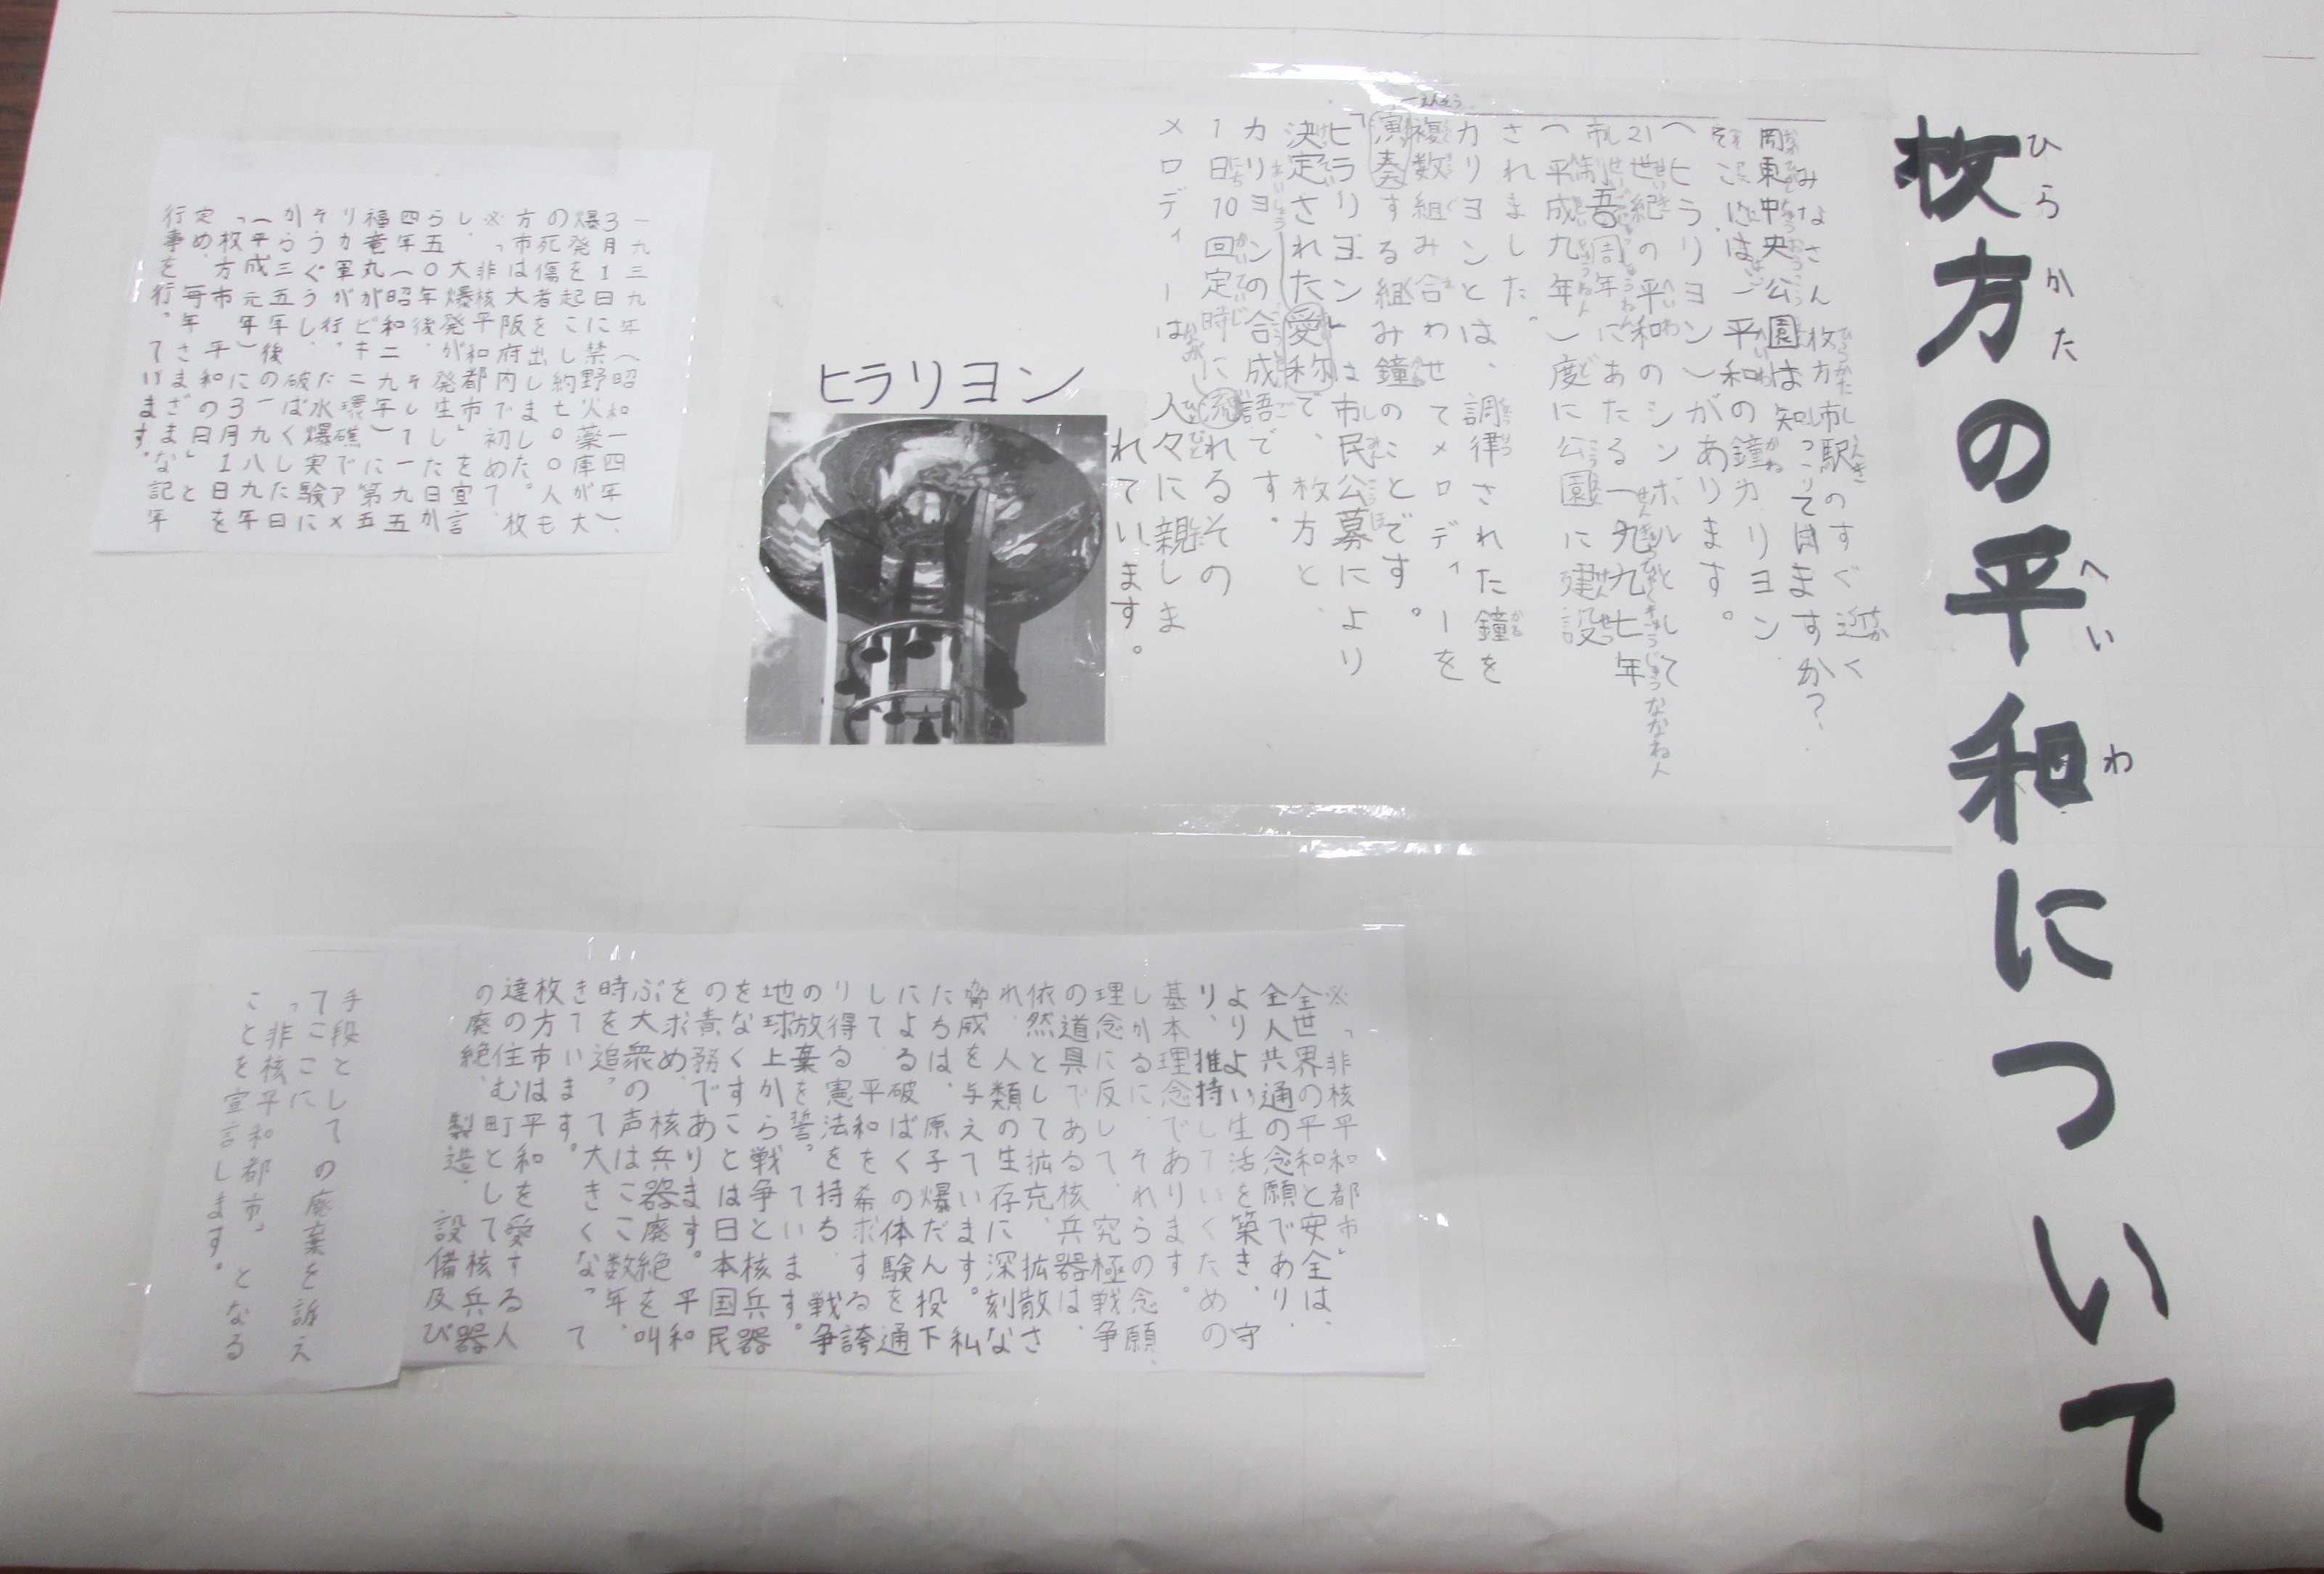 枚方の平和について
ひらかた
へいわ
みなさん枚方市駅のすぐ近く
岡東中央公園は知ってますか？
そこには、平和の鐘カリヨン
（ヒラリヨン）があります。
21世紀の平和のシンボルとして
市制五周年にあたる一九九七年
（平成九年）度に公園に建設
されました。
カリヨンとは、調律された鐘を
複数組み合わせてメロディーを
演奏する組み鐘のことです。
「ヒラリヨン」は市民公募により
決定された愛称で、枚方と、
カリヨンの合成語です。
1日10回定時に流れるその
メロディーは人々に親しま
れています。
ヒラリヨン
一九三九年（昭和一四年）、
3月1日に禁野火薬庫が大
爆発を起こし約七〇〇人も
の死傷者を出しました。
※枚方市は大阪府内で初めて、
「非核平和都市」を宣言
し、大爆発が発生した日か
ら五〇年後、そして一九五
四年（昭和二九年）に第五
福竜丸がビキニ環礁でアメ
リカ軍が行った水爆実験に
そうぐうし、破ばくした日
から三五年後の一九八九年
（平成元年）に3月1日を
「枚方市平和の日」と
定め、毎年さまざまな記年
行事を行っています。
※「非核平和都市」
全世界の平和と安全は、
全人共通の念願であり、
よりよい生活を築き、守
り、推持していくための
基本理念であります。
しかるに、それらの念願、
理念に反して、究極戦争
の道具である核兵器は、
依然として拡充、拡散さ
れ、人類の生存に深刻な
脅威を与えています。私
たるは、原子爆だん投下
による破ばくの体験を通
して、平和を希求する誇
り得る憲法を持ち、戦争
の放棄を誓っています。
地球上から戦争と核兵器
をなくすことは日本国民
の責務であります。平和
を求め、核兵器廃絶を叫
ぶ大衆の声はここ数年、
時を追って大きくなって
きています。
枚方市は平和を愛する人
達の住む町として核兵器
の廃絶、製造、設備及び
手段としての廃棄を訴え
てここに
「非核平和都市」となる
ことを宣言します。